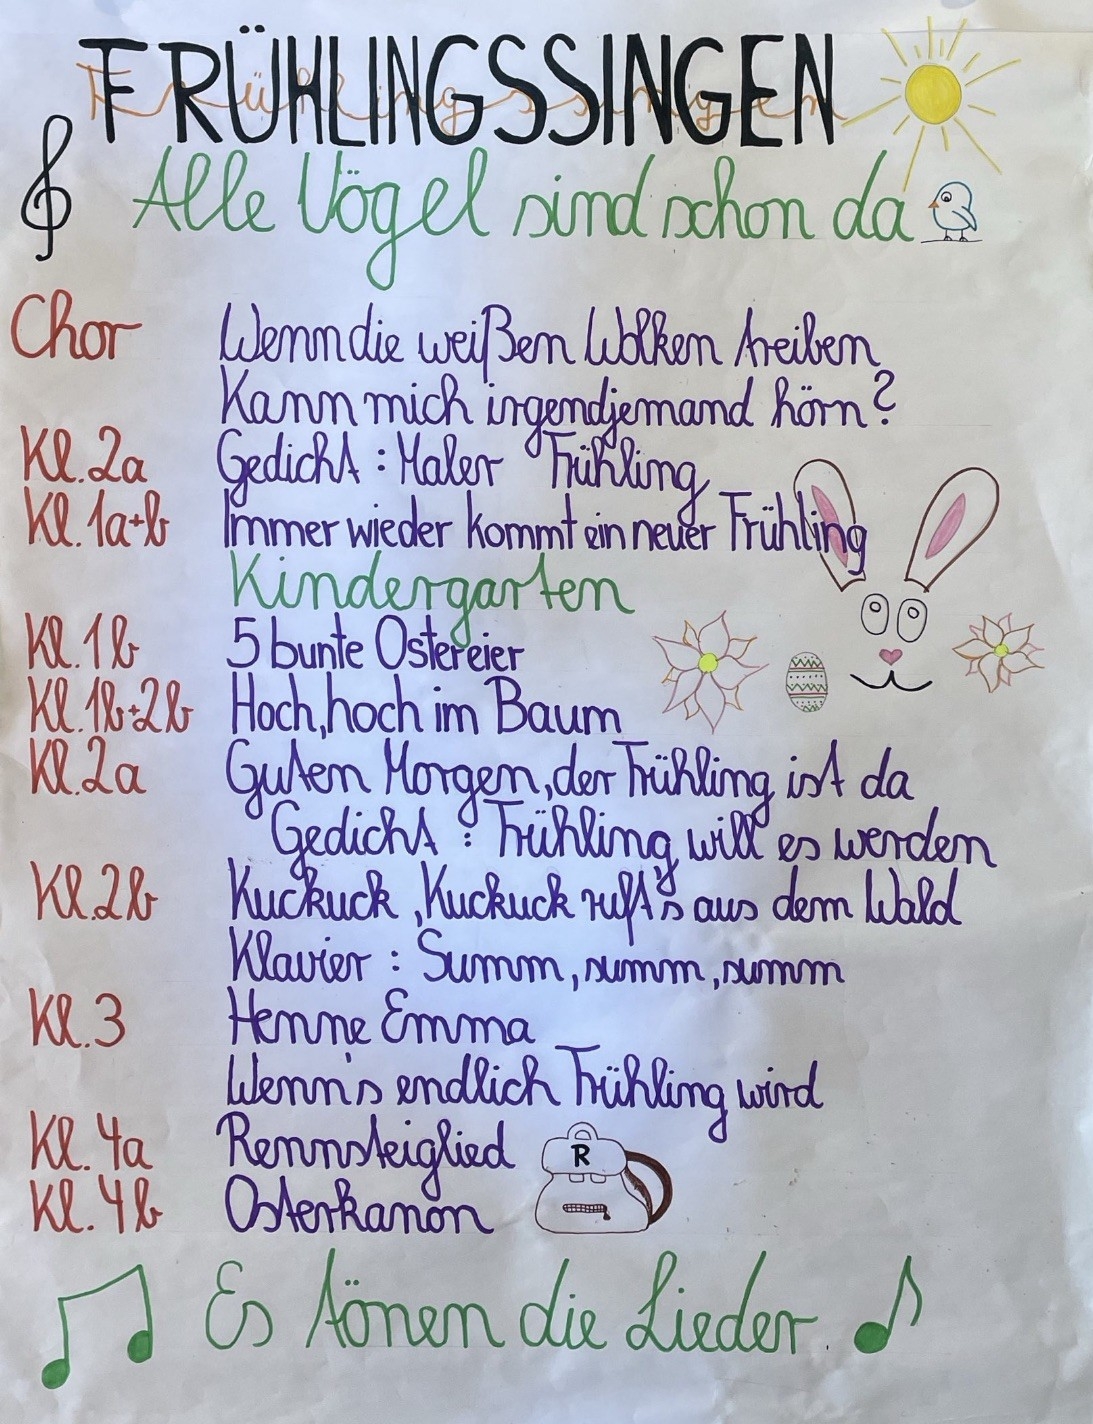 FRÜHLINGSSINGEN
Alle Vögel sind schon da
Chor Wenn die weißen Wolken treiben
Kann mich irgendjemand hörn?
Kl. 2a Gedicht: Maler Frühling
Kl. 1a+b Immer wieder kommt ein neuer Frühling
Kindergarten
Kl. 1b 5 bunte Ostereier
Kl. 1b+2b Hoch, hoch im Baum
Kl. 2a Guten Morgen, der Frühling ist da
Gedicht: Frühling will es werden
Kl. 2b Kuckuck, Kuckuck ruft's aus dem Wald
Klavier: Summ, summ, summ
Kl. 3 Henne Emma
Wenn's endlich Frühling wird
Kl. 4a Rennsteiglied
R
Kl. 4b Osterkanon
Es tönen die Lieder